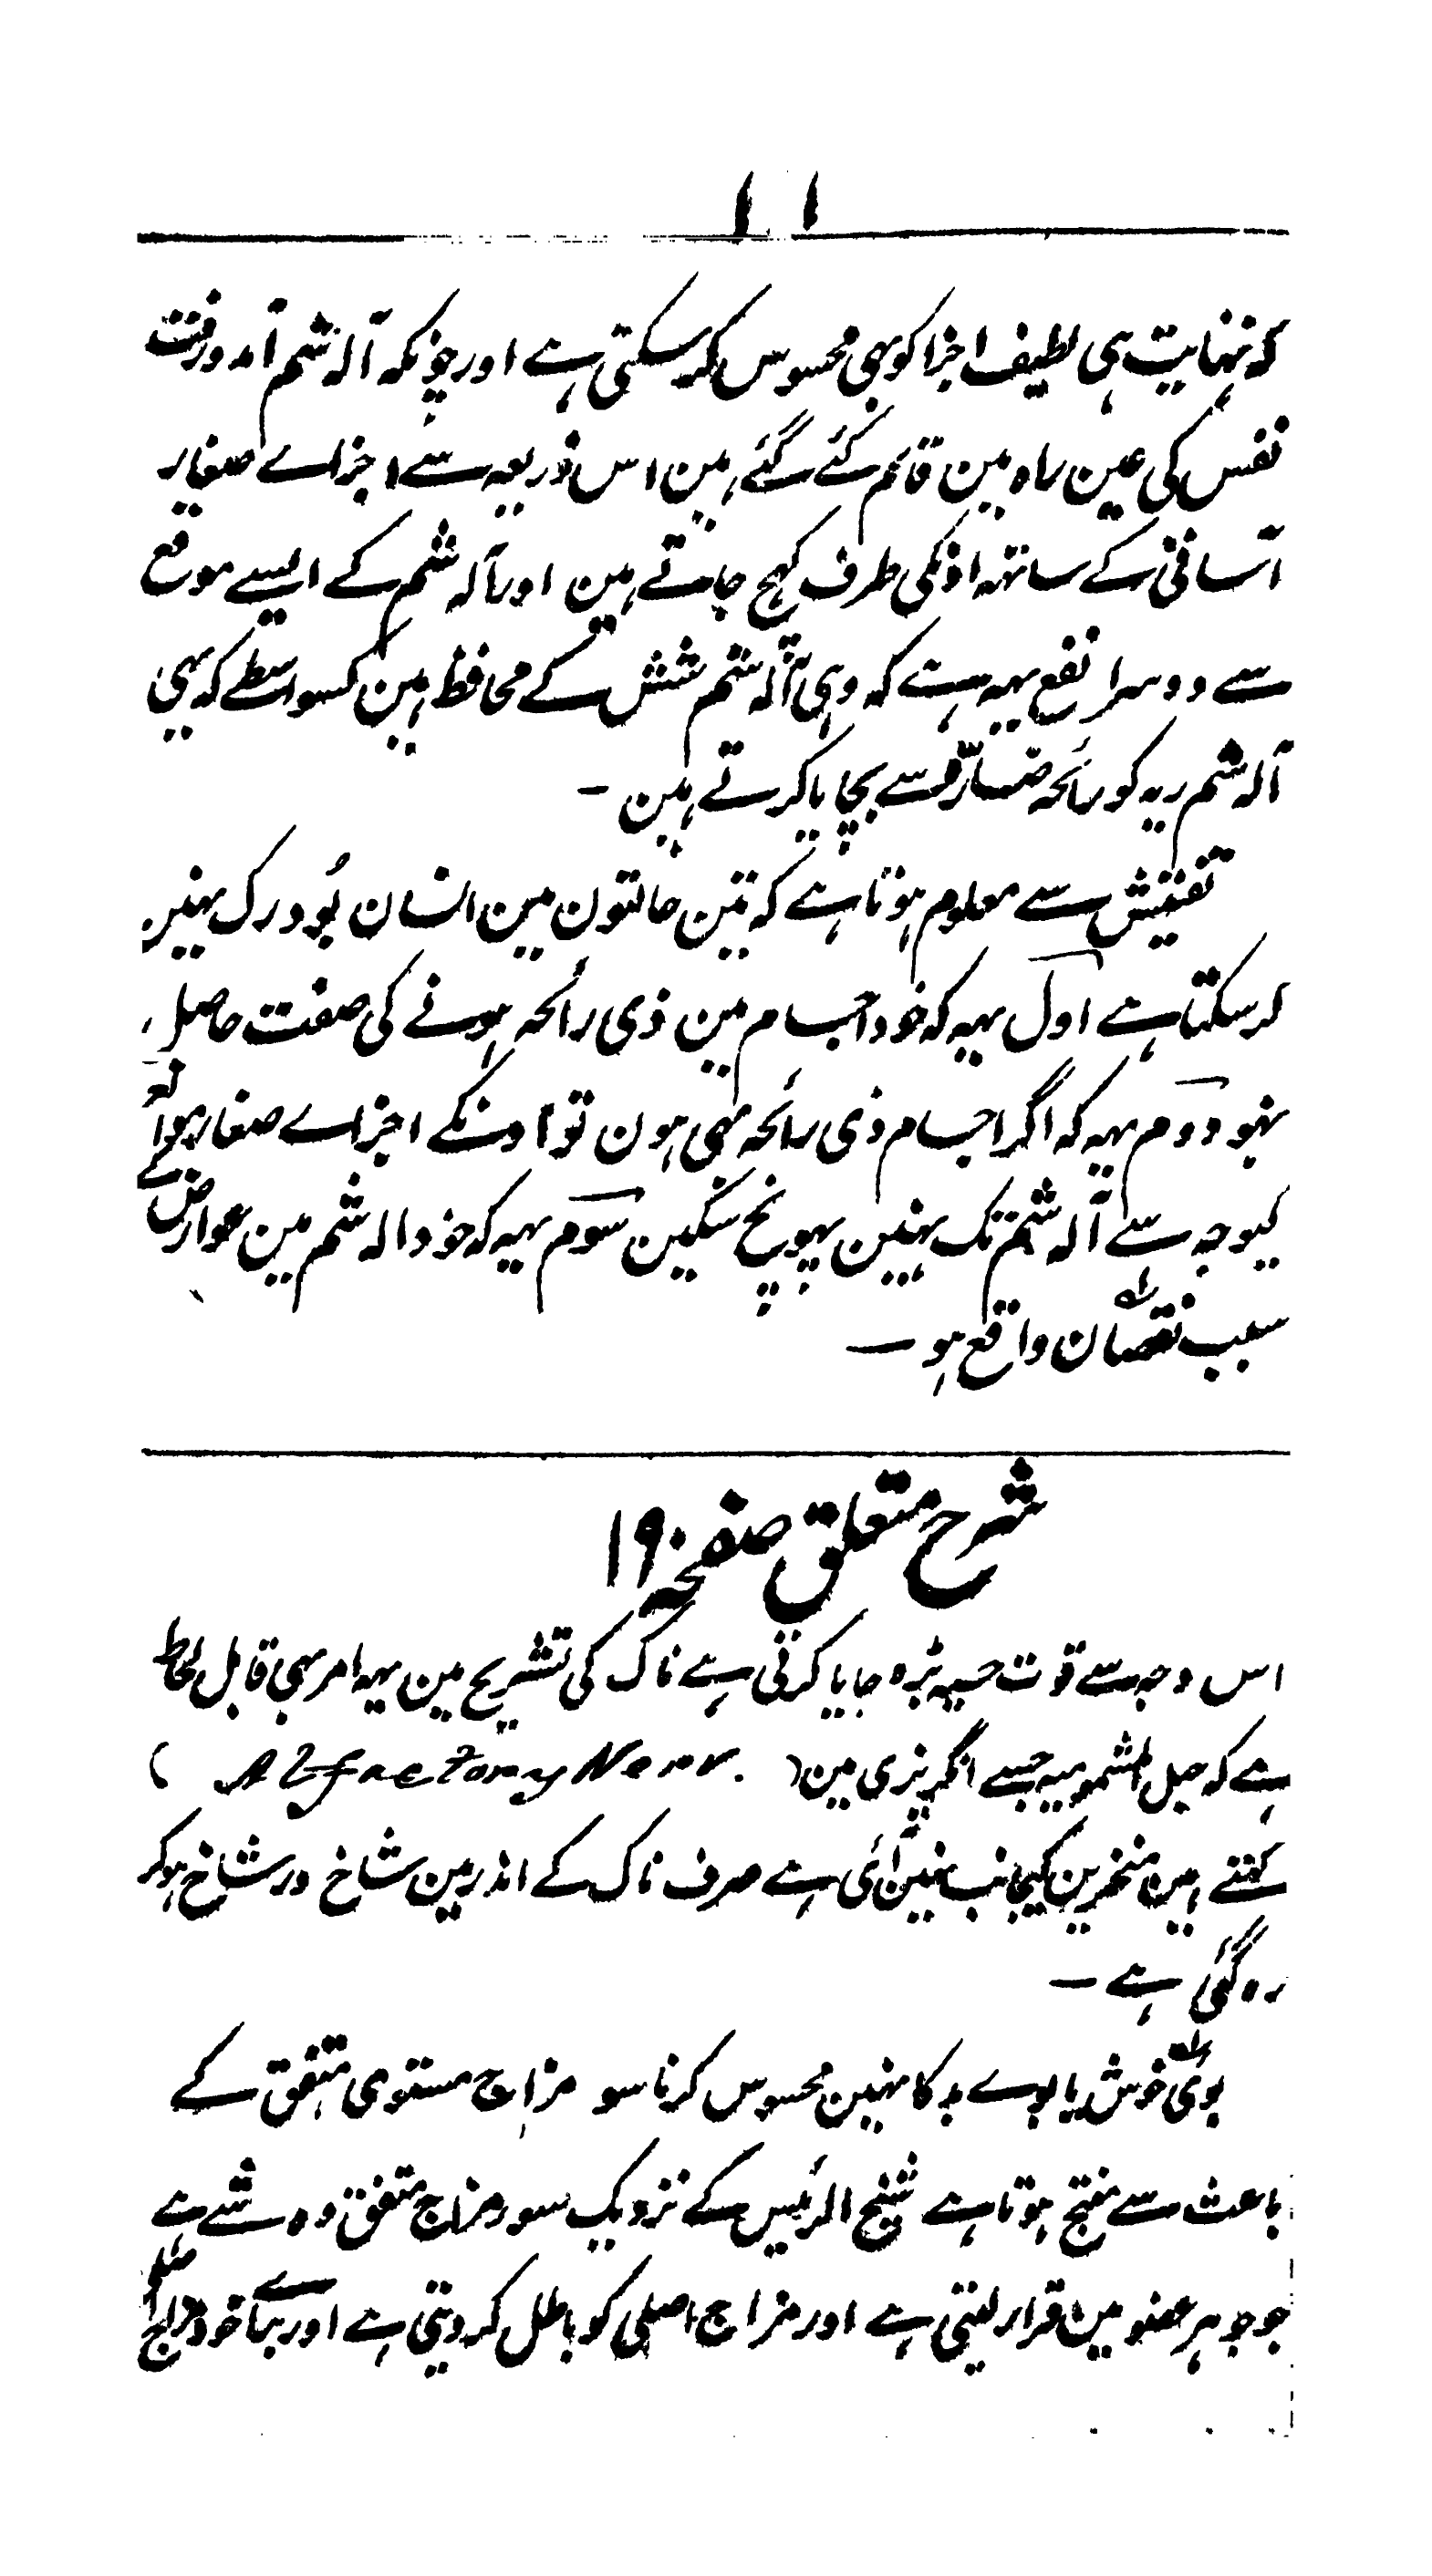 ۱۱
کہ نہایت ہی لطیف اجزا کو بھی محسوس کر سکتی ہے اور چونکہ آلہ شم آمد ورفت
نفس کی عین راہ مین قائم کئے گئے ہین اس ذریعہ سے اجزاے صغار
آسانی کے ساتھہ اونکی طرف کہچ جاتے ہین اور آلہ شم کے ایسے موقع
سے دوسرا نفع یہہ ہے کہ وہی آلہ شم شش کے محافظ ہین کسواسطے کہ یہی
آلہ شم ریہ کو رائحہ ضارہ سے بچایا کرتے ہین ۔
تفتیش سے معلوم ہوتا ہے کہ تین حالتون مین انسان بُو درک نہین
کرسکتا ہے اول یہہ کہ خود اجسام مین ذی رائحہ ہونے کی صفت حاصل
نہو دوم یہہ کہ اگر اجسام ذی رائحہ بھی ہون تو اونکے اجزاے صغار ہوا
کیوجہ سے آلہ شم تک نہین پہونچ سکین سوم یہہ کہ خود آلہ شم مین عوارض کے
سبب نقصان واقع ہو ۔
شرح متعلق صفحہ ۱۹۰
اس وجہ سے قوت حسیہ بڑہ جایا کرتی ہے ناک کی تشریح مین یہہ امر بھی قابل لحاظ
ہے کہ حبل المشمومیہ جسے انگریزی مین ( Alfactory Nerv. )
کہتے ہین منخرین کیجانب نہین آئی ہے صرف ناک کے اندر مین شاخ در شاخ ہوکر
رہ گئی ہے ۔
بوی خوش یا بوے بد کا نہین محسوس کرنا سو مزاج مستوی متفق کے
باعث سے منتج ہوتا ہے شیخ الرئیس کے نزدیک سور مزاج متفق وہ شے ہے
جو جوہر عضو مین قرار لیتی ہے اور مزاج اصلی کو باطل کر دیتی ہے اور بجاے خود مزاج اصلی